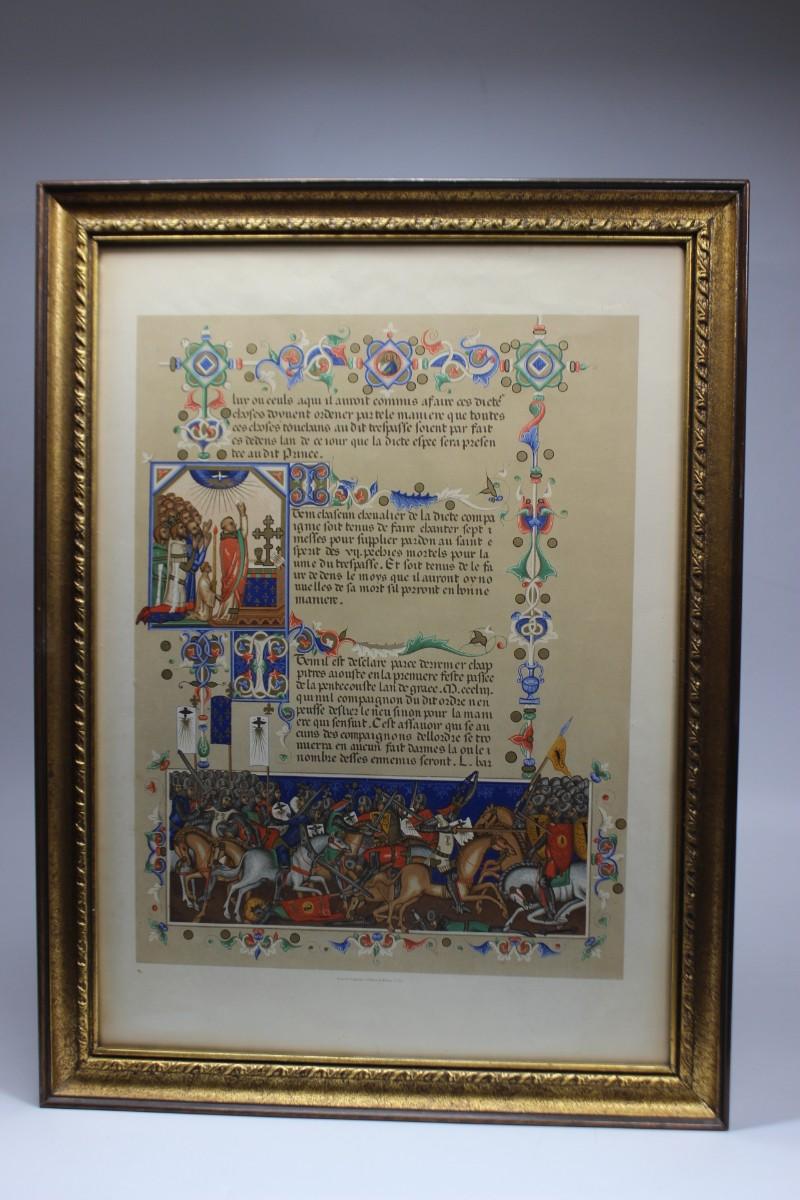 lur ou ceuls aqui il auroit commis a faire ces dicte
choses doyuent ordener par tele maniere que toutes
ces choses touchans au dit trespasse soient par fait
es dedens lan de ce iour que la dicte espee sera presen
tee au dit Prince.
Item chascun chevalier de la dicte compa
ignie soit tenus de faire chanter sept i
messes pour supplier pardon au saint e
sperit des vij. pechies mortels pour la
ume du trespasse. Et soit tenus de le fa
ire de dens le moys que il auront oy no
uuelles de sa mort sil porront en bonne
maniere.
Item il est desclare par ce derremer chap
pitres aiouste en la premiere feste passee
de la pentecouste lan de grace. M. ccclm.
qui nul compaignon du dit ordre nen
peusse deslier le neu sinon pour la mani
ere qui sensuit. C est assauoir qui se au
cuns des compaignons dellordre se tro
uuerra en aucun fait darmes la ou le i
nombre desses ennemis seront. L. bar